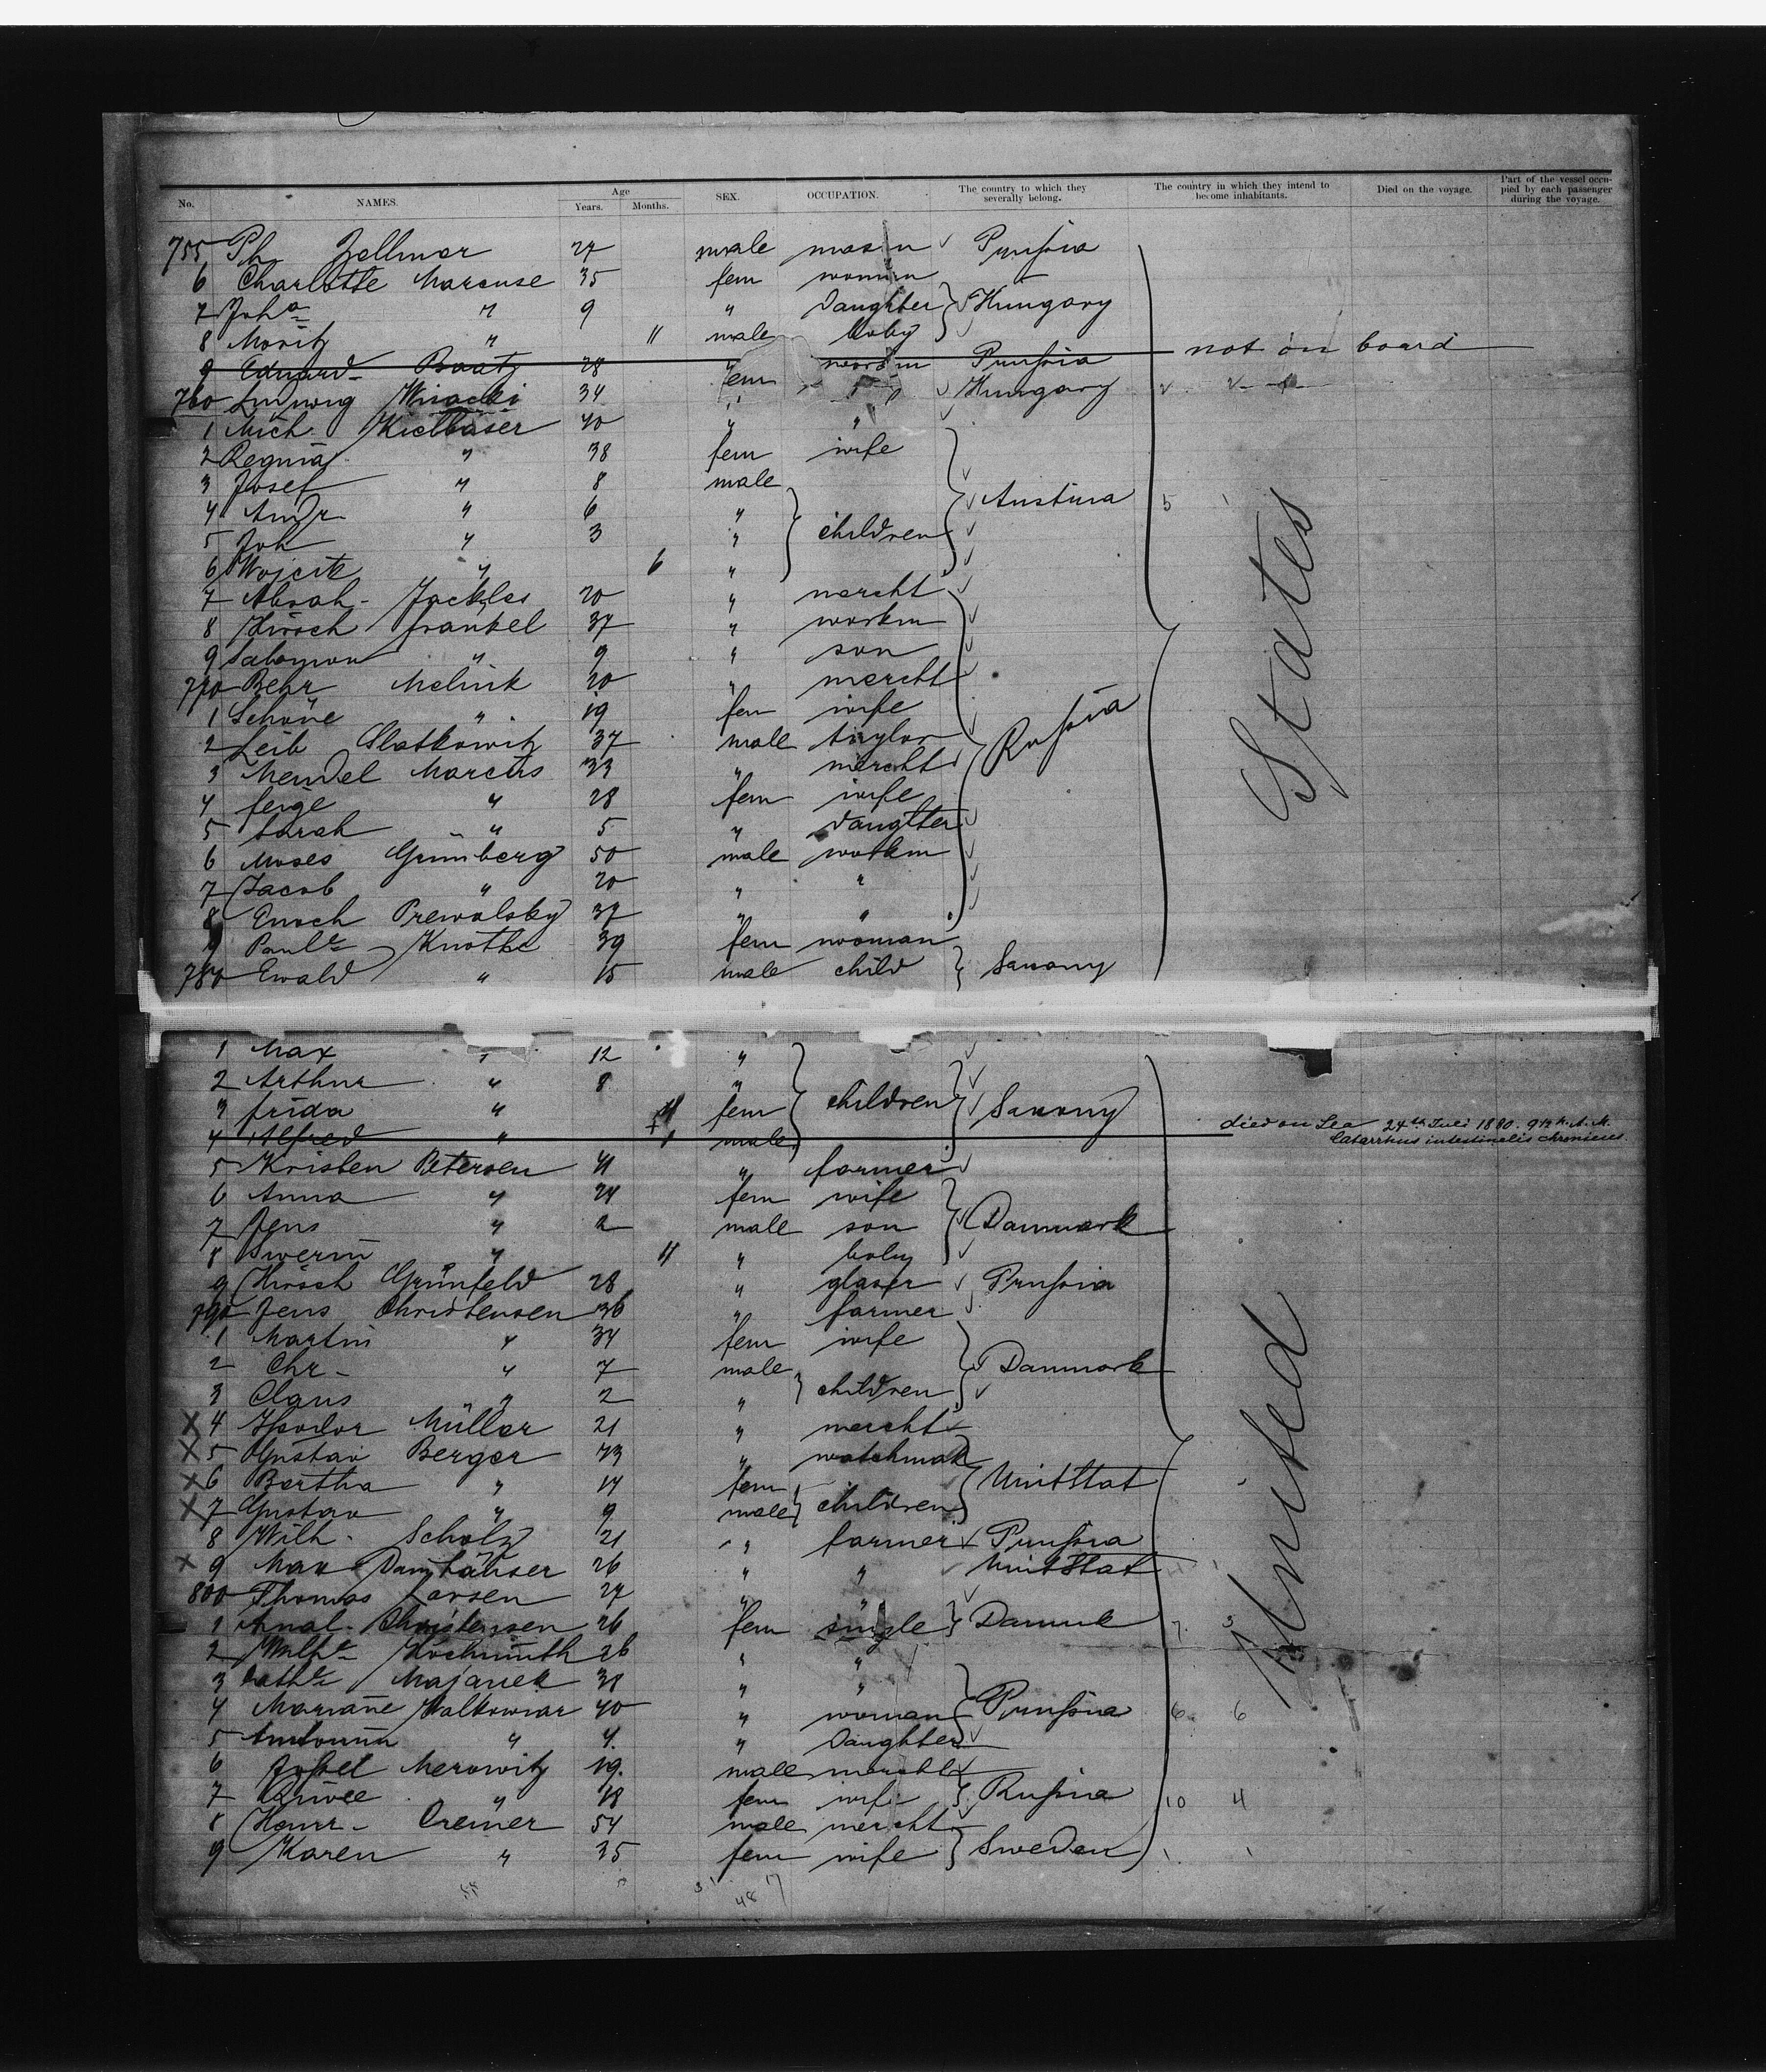 No. NAMES. Age Years. Months. SEX. OCCUPATION. The country to which they severally belong. The country in which they intend to become inhabitants. Died on the voyage. Part of the vessel occupied by each passenger during the voyage.
755 Ph. Zellmer 27 male Prussia
6 Charlotte Marcuse 35 fem woman
7 Joha " 9 " Daughter Hungary
8 Moritz " 11 male baby
9 Eduard Raatz 28 " workm Prussia not on board
760 Ludwig 34 " Hungary
1 Mich. Kielbaser 40 " "
2 Regina " 38 fem wife
3 Josef " 8 male
4 Andr " 6 " Austuria
5 Joh " 3 " children
6 Wojcik " 6 "
7 Abrah- Jackles 20 " mercht
8 Hirsch Frankel 37 " workm
9 Salomon " 9 " son
770 Behr Melnik 20 " mercht
1 Schöne " 19 fem wife
2 Leib Slatkowitz 37 male taylor Russia
3 Mendel Marcus 33 " mercht
4 feige " 28 fem wife
5 Sarah " 5 " daugtter
6 Moses Grünberg 50 male workm
7 Jacob " 20 " "
8 Enoch Prewolsky 37 " "
9 Paule Knothe 39 fem woman
780 Ewald " 15 male child Saxony
1 Max " 12 "
2 Arthur " 8 "
3 frida " 4 fem children Saxony
4 Alfred " 1 male died on Sea 24th Juli 1880. 9½ h. A.M.
Catarrhus intestinalis chronicus.
5 Kristen Petersen 41 " farmer
6 Anna " 24 fem wife
7 Jens " 2 male son Danmark
8 " 11 " baby
9 Hirsch Grünfeld 28 " glaser Prussia
790 Jens Christensen 36 " farmer
1 Martin " 34 fem wife
2 Chr- " 7 male Danmark
3 Claus " 2 " children
X 4 Isodor Müller 21 " mercht
X 5 Gustav Berger 43 " watchmak
X 6 Bertha " 14 fem UnitStat
X 7 Gustav " 9 male children
8 Wilh- Scholz 21 " farmer Prussia
X 9 Max Danhäuser 26 " " UnitStat
800 Thomas Larsen 27 " "
1 Amal- Christensen 26 fem single Danmk 7. 3
2 Wilhe Hochmuth 26 " "
3 Cathe Majanek 38 " "
4 Mariane Walkowiar 40 " woman Prussia 6 6
5 " 4. " Daughter
6 Josel Merowitz 19. male mercht
7 " 18 fem wife Russia 10 4
8 Cremer 54 male mercht
9 Karen " 35 fem wife Sweden
United States
48